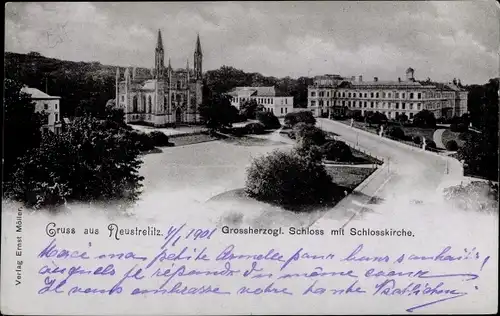 Gruss aus Neustrelitz. 1/I 1901 Grossherzogl. Schloss mit Schlosskirche.
Verlag Ernst Möller.
Merci ma petite Armelle pour leurs souhaits!
auxquels je répands du même coeur
Je vous embrasse votre tante